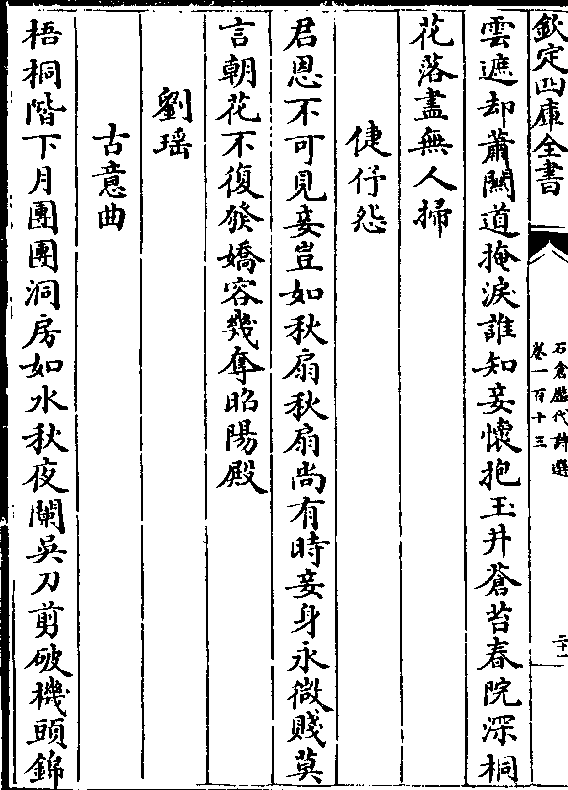 欽定四庫全書
石倉歷代詩選
卷一百十三
二十一
雲遮却蕭關道掩淚誰知妾懷抱玉井蒼苔春院深桐
花落盡無人掃
倢伃怨
君恩不可見妾豈如秋扇秋扇尚有時妾身永微賤莫
言朝花不復發嬌容幾奪昭陽殿
劉瑤
古意曲
梧桐階下月團團洞房如水秋夜闌吳刀剪破機頭錦